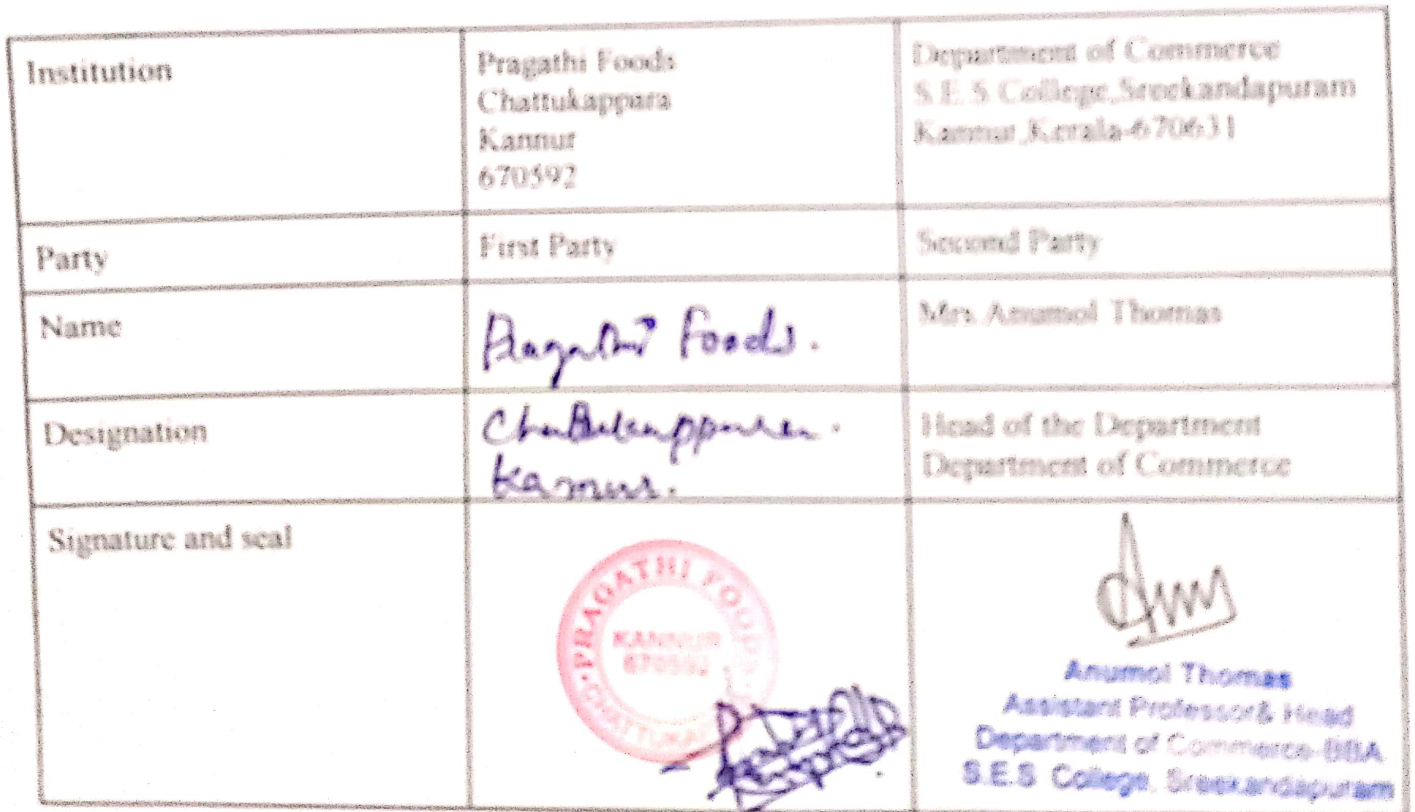 Institution
Pragathi Foods
Chattukappara
Kannur
670592
Department of Commerce
S.E.S College,Sreekandapuram
Kannur,Kerala-670631
Party
First Party
Second Party
Name
Pragathi Foods.
Mrs. Anumol Thomas
Designation
Chattukappara.
Kannur.
Head of the Department
Department of Commerce
Signature and seal
PRAGATHI FOODS
KANNUR
670592
Anumol Thomas
Assistant Professor& Head
Department of Commerce-BBA
S.E.S College, Sreekandapuram